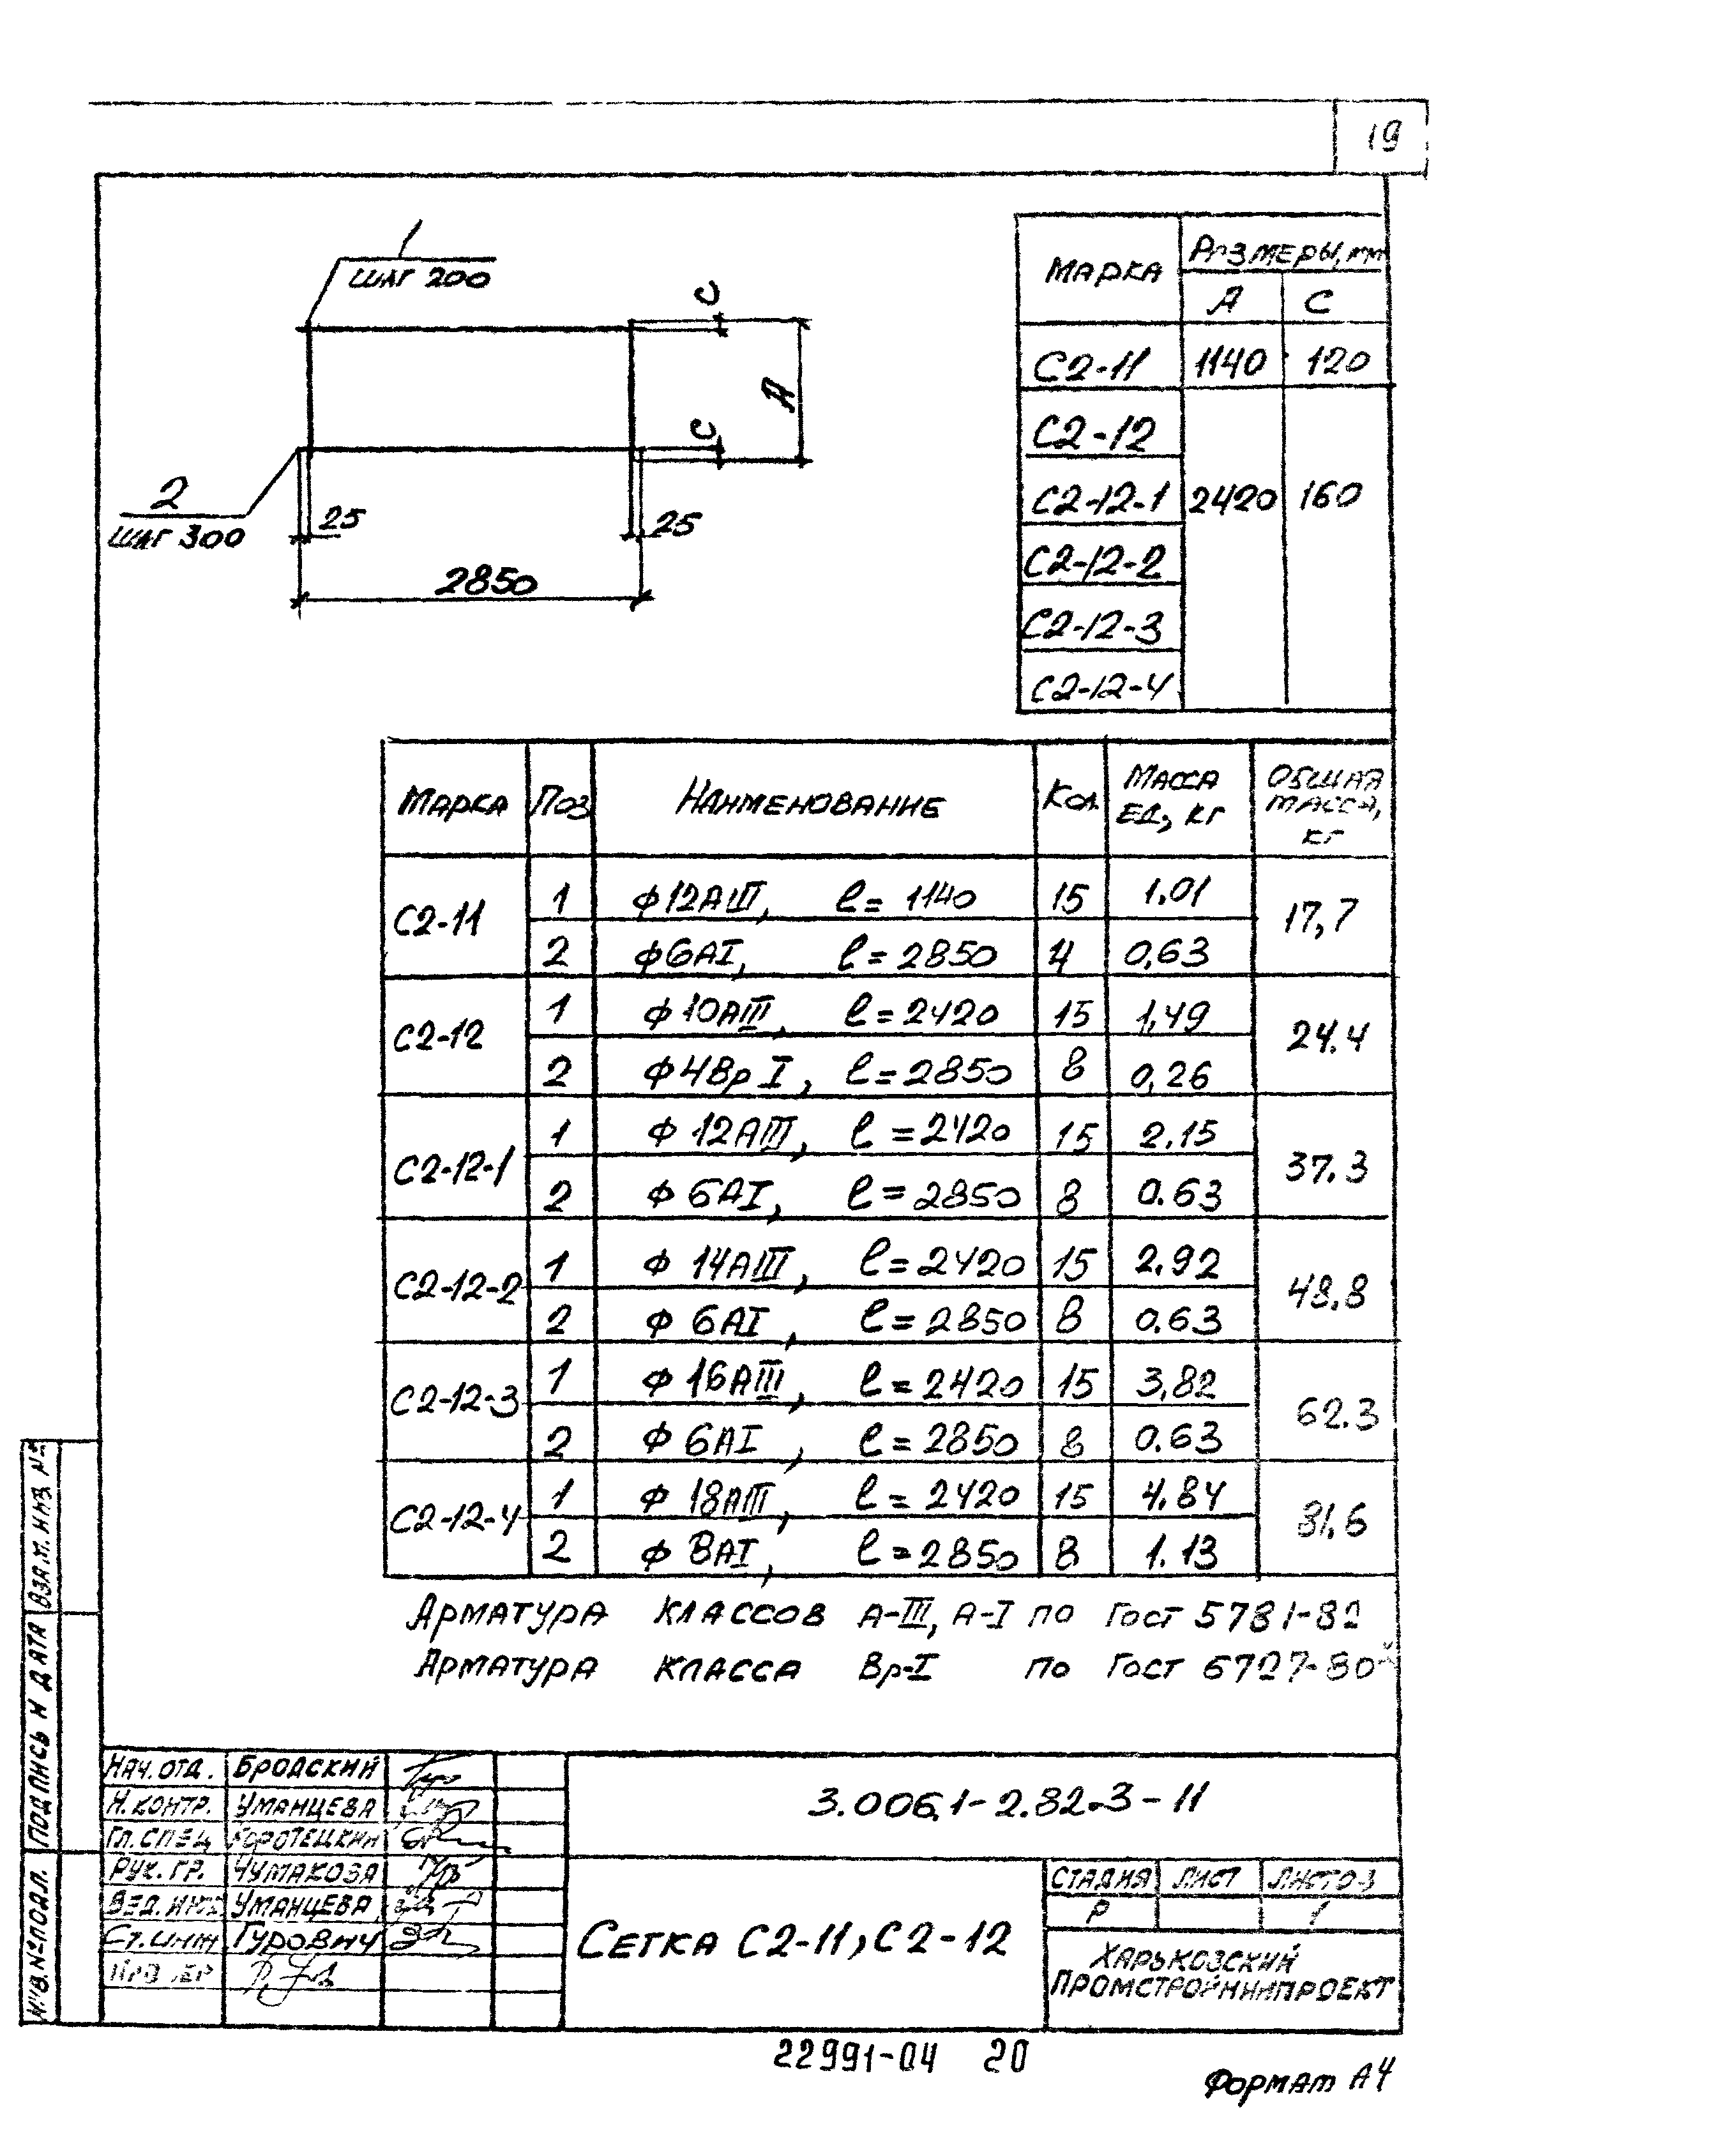 19
1
ШАГ 200
С
А
С
2
ШАГ 300
25
25
2850
МАРКА РАЗМЕРЫ, мм
А С
С2-11 1140 120
С2-12
С2-12-1 2420 160
С2-12-2
С2-12-3
С2-12-4
МАРКА ПОЗ НАИМЕНОВАНИЕ КОЛ. МАССА ЕД, КГ ОБЩАЯ МАССА, КГ
С2-11 1 ϕ12АIII, ℓ= 1140 15 1.01 17,7
2 ϕ6АI, ℓ=2850 4 0,63
С2-12 1 ϕ10АIII, ℓ=2420 15 1,49 24.4
2 ϕ4ВрI, ℓ=2850 8 0,26
С2-12-1 1 ϕ 12АIII, ℓ=2420 15 2.15 37.3
2 ϕ 6АI, ℓ=2850 8 0.63
С2-12-2 1 ϕ 14АIII, ℓ=2420 15 2.92 48.8
2 ϕ 6АI, ℓ=2850 8 0.63
С2-12-3 1 ϕ 16АIII, ℓ=2420 15 3,82 62.3
2 ϕ 6АI, ℓ=2850 8 0.63
С2-12-4 1 ϕ 18АIII, ℓ=2420 15 4.84 81.6
2 ϕ 8АI, ℓ=2850 8 1.13
АРМАТУРА КЛАССОВ А-III, А-I ПО ГОСТ 5781-82
АРМАТУРА КЛАССА Вр-I ПО ГОСТ 6727-80
ВЗАМ. ИНВ. №
ПОДПИСЬ И ДАТА
ИНВ.№ПОДЛ.
НАЧ.ОТД. БРОДСКИЙ
Н.КОНТР. УМАНЦЕВА
ГЛ.СПЕЦ КОРОТЕЦКИЙ
РУК. ГР. ЧУМАКОВА
ВЕД.ИНЖ УМАНЦЕВА
СТ.ИНЖ ГУРОВИЧ
3.006.1-2.82.3-11
СЕТКА С2-11, С2-12
СТАДИЯ ЛИСТ ЛИСТОВ
Р 1
ХАРЬКОВСКИЙ
ПРОМСТРОЙНИИПРОЕКТ
22991-04 20
ФОРМАТ А4